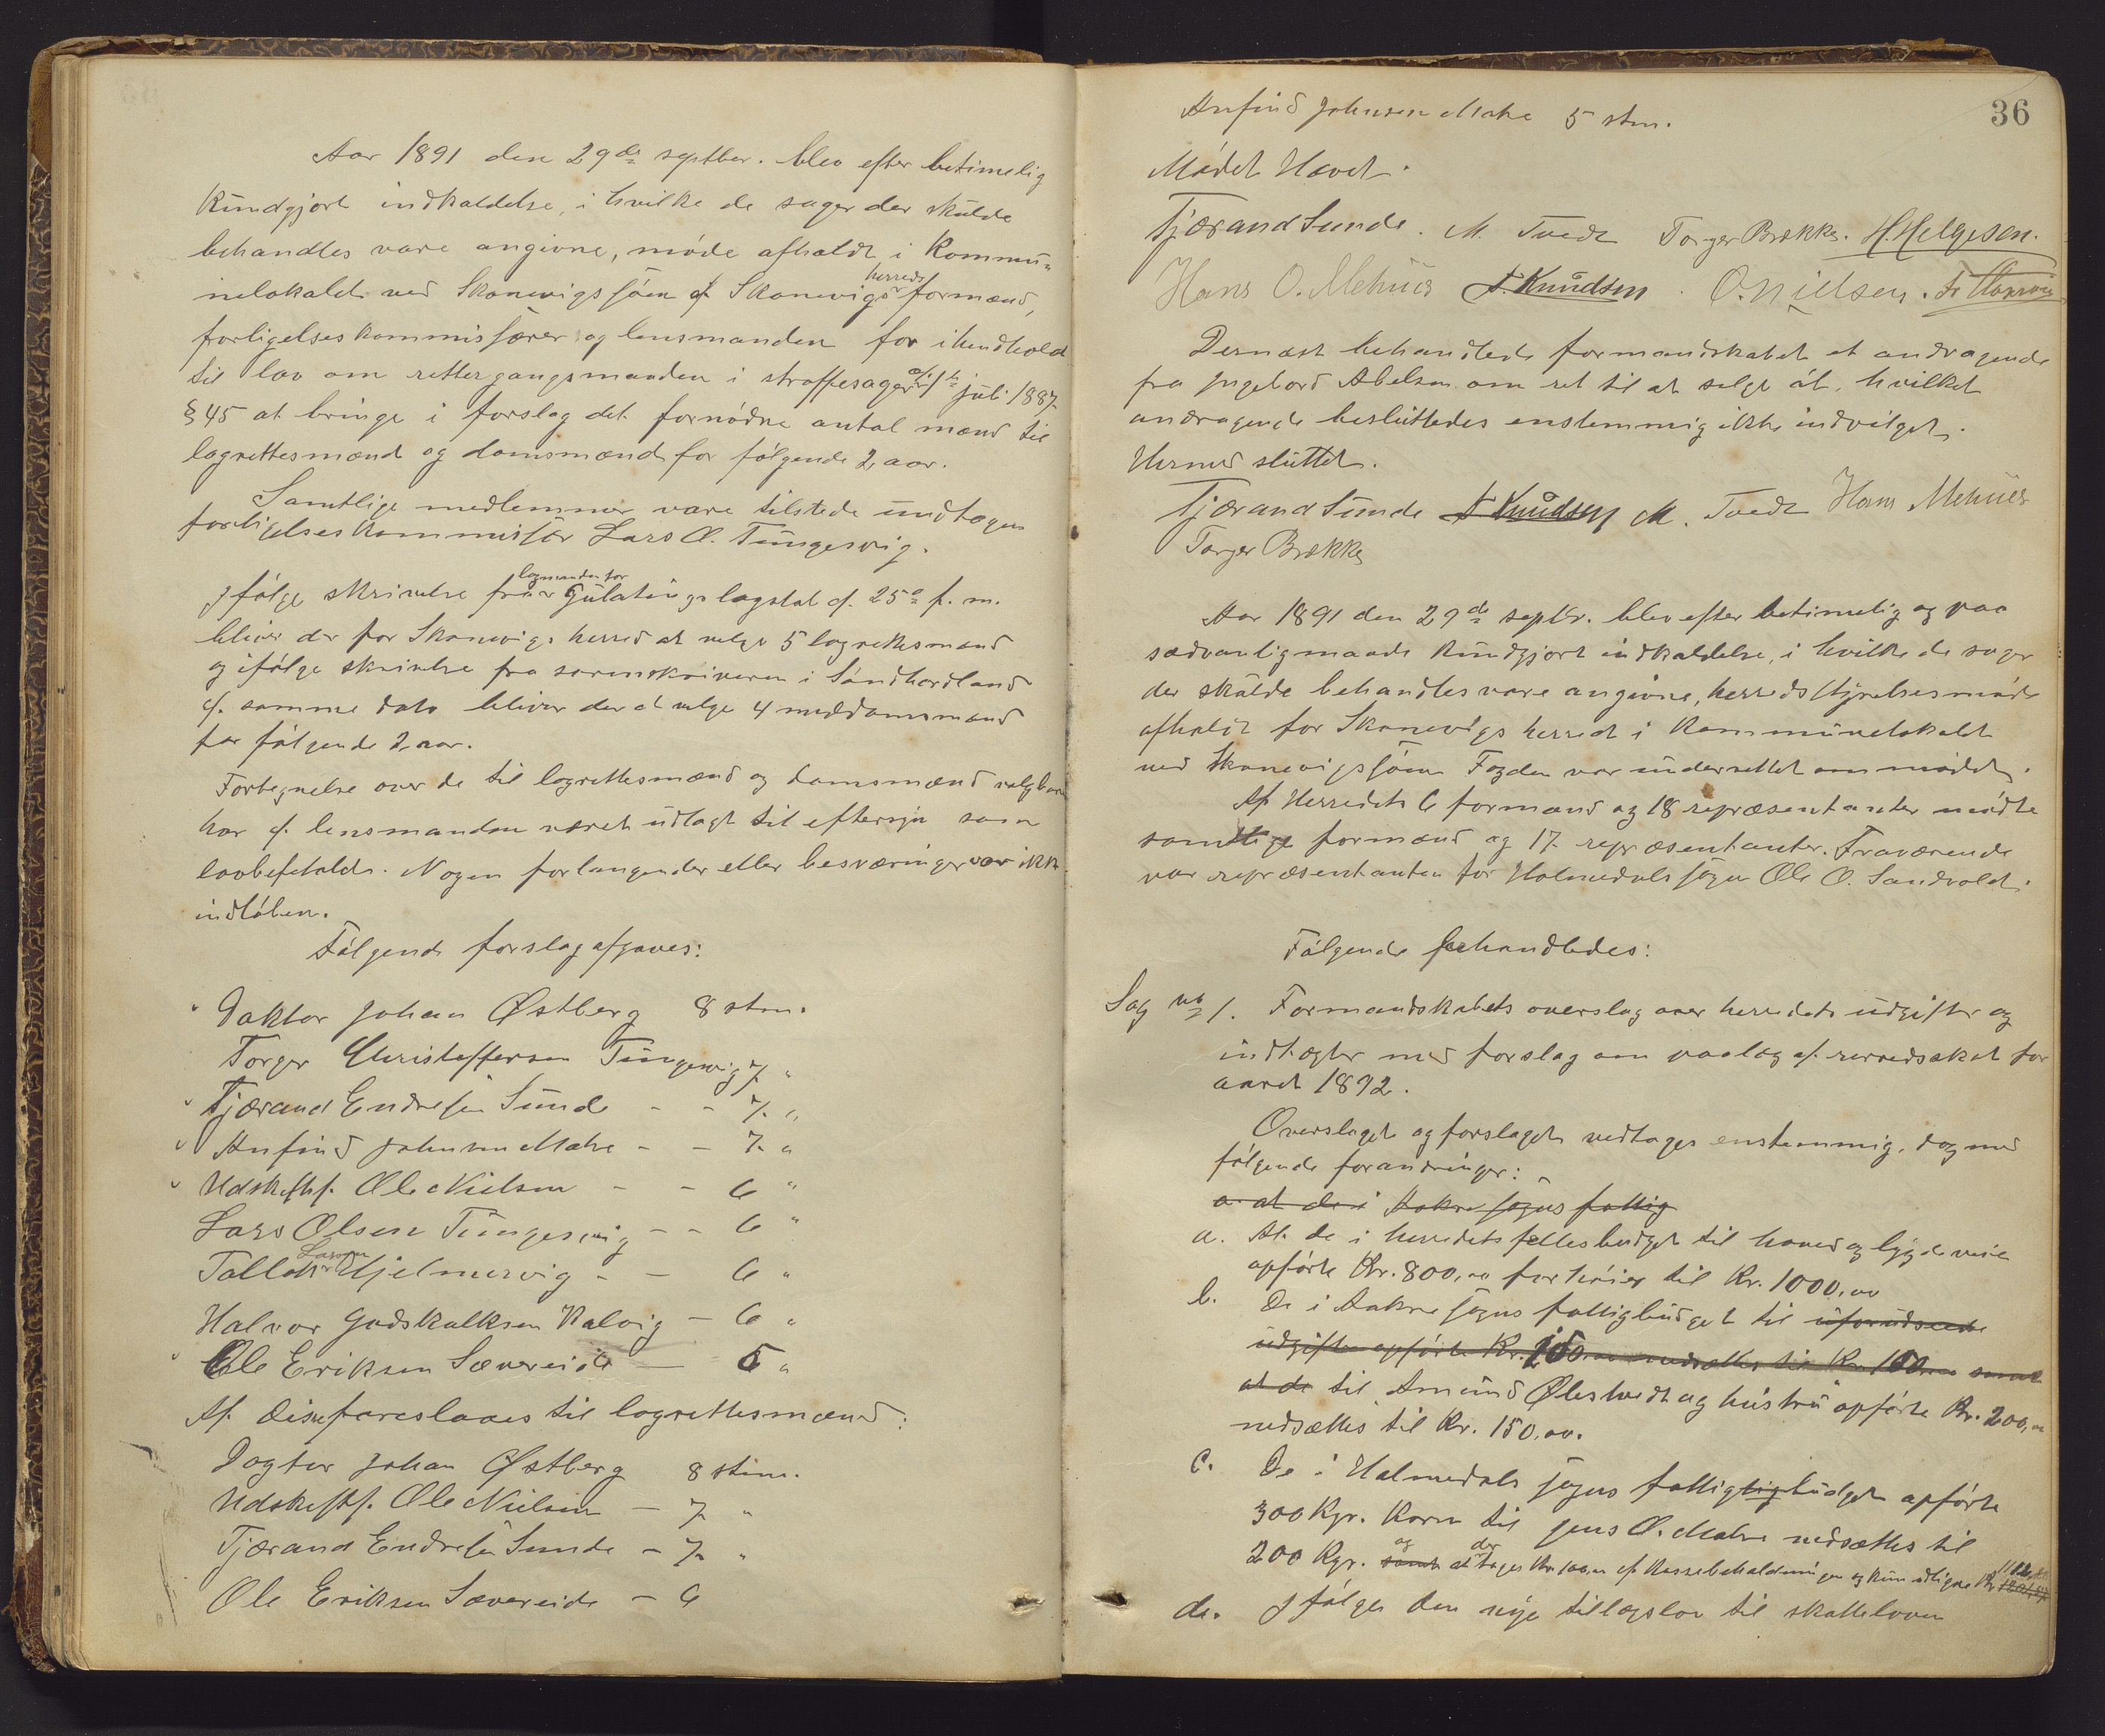 Aar 1891 den 29de septber. blev efter betimelig
kundgjort indkaldelse, i hvilke de sager der skulde
behandles vare angivne, møde afholdt i Kommu-
nelokalet ved Skonevigsjøen af Skonevigs herreds formænd,
forligelseskommissærer og lensmanden for ihendhold
til lov om rettergangsmaaden i straffesager af 1ste juli 1887
§ 45 at bringe i forslag det fornødne antal mænd til
lagrettesmænd og domsmænd for følgende 2 aar.
Samtlige medlemmer vare tilstede undtagen
forligelseskommissær Lars O. Tungesvig.
Ifølge skrivelse fra lagmanden for Gulatings lagstol af 25de f. m.
bliver der for Skonevigs herred at vælge 5 lagrettesmænd
og ifølge skrivelse fra sorenskriveren i Søndhordland
af samme dato bliver der at vælge 4 meddomsmænd
for følgende 2 aar.
Fortegnelse over de til lagrettesmænd og domsmænd valgbare
har af lensmanden været udlagt til eftersyn som
lovbefalet. Nogen forlangender eller besværinger var ikke
indløben.
Følgende forslag afgaves:
Doktor Johan Østberg 8 stm.
Torger Christoffersen Tungesvig 7 "
Tjærand Endresen Sunde - - 7 "
Anfind Johnsen Matre - - 7 "
Udskiftsf. Ole Nielsen - - 6 "
Lars Olsen Tungesvig - - 6 "
Tollak Larsen Hjelmervig - - 6 "
Halvor Godskalksen Valvig - 6 "
Ole Eriksen Sævereide - 5 "
Af disse foreslaaes til lagrettesmænd:
Dogtor Johan Østberg 8 stm.
Udskiftsf. Ole Nielsen - 7 "
Tjærand Endresen Sunde - 7 "
Ole Eriksen Sævereide - 6
36
Anfind Johnsen Matre 5 stm.
Mødet Hævet.
Tjærand Sunde. M. Tvedt Torger Brække. H. Helgesen.
Hans O. Mehus S. Knudsen. O. Nielsen.
Dernæst behandlede formandskabet et andragende
fra Ingebord Abelsen om ret til at sælge øl, hvilket
andragende besluttedes enstemmig ikke indvilget.
Hermed sluttet.
Tjærand Sunde S. Knudsen M. Tvedt Hans Mehus
Torger Brække
Aar 1891 den 29de septbr. blev efter betimelig og paa
sædvanlig maade kundgjort indkaldelse, i hvilke de sager
der skulde behandles vare angivne, herredsstyrelsesmøde
afholdt for Skonevigs herred i Kommunelokalet
ved Skonevigsjøen Fogden var underrettet om mødet.
Af Herredets 6 formænd og 18 repræsentanter mødte
samtlige formænd og 17 repræsentanter. Fraværende
var repræsentanten for Holmedals sogn Ole O. Sandvold.
Følgende behandledes:
Sag no 1. Formandskabets overslag over herredets udgifter og
indtægter med forslag om paalæg af herredsskat for
aaret 1892.
Overslaget og forslaget vedtages enstemmig, dog med
følgende forandringer:
a. at de i Aakre sogns fattig
a. At de i herredets fællesbudget til hoved og bygdeveie
opførte Kr. 800,00 forhøies til Kr. 1000,00
b. De i Aakre sogns fattigbudget til uforudseede
udgifter opførte Kr. 150,00 nedsættes til Kr. 100,00 samt
at de til Amund Ølestvedt og hustru opførte Kr. 200,00
nedsættes til Kr. 150,00.
c. De i Holmedals sogns fattigbudget opførte
300 Kgr. Korn til Jens O. Matre nedsættes til
200 Kgr. samt og at der tages Kr. 100,00 af Kassebeholdningen og kun udlignes Kr.
d. Ifølge den nye tillægslov til skatteloven